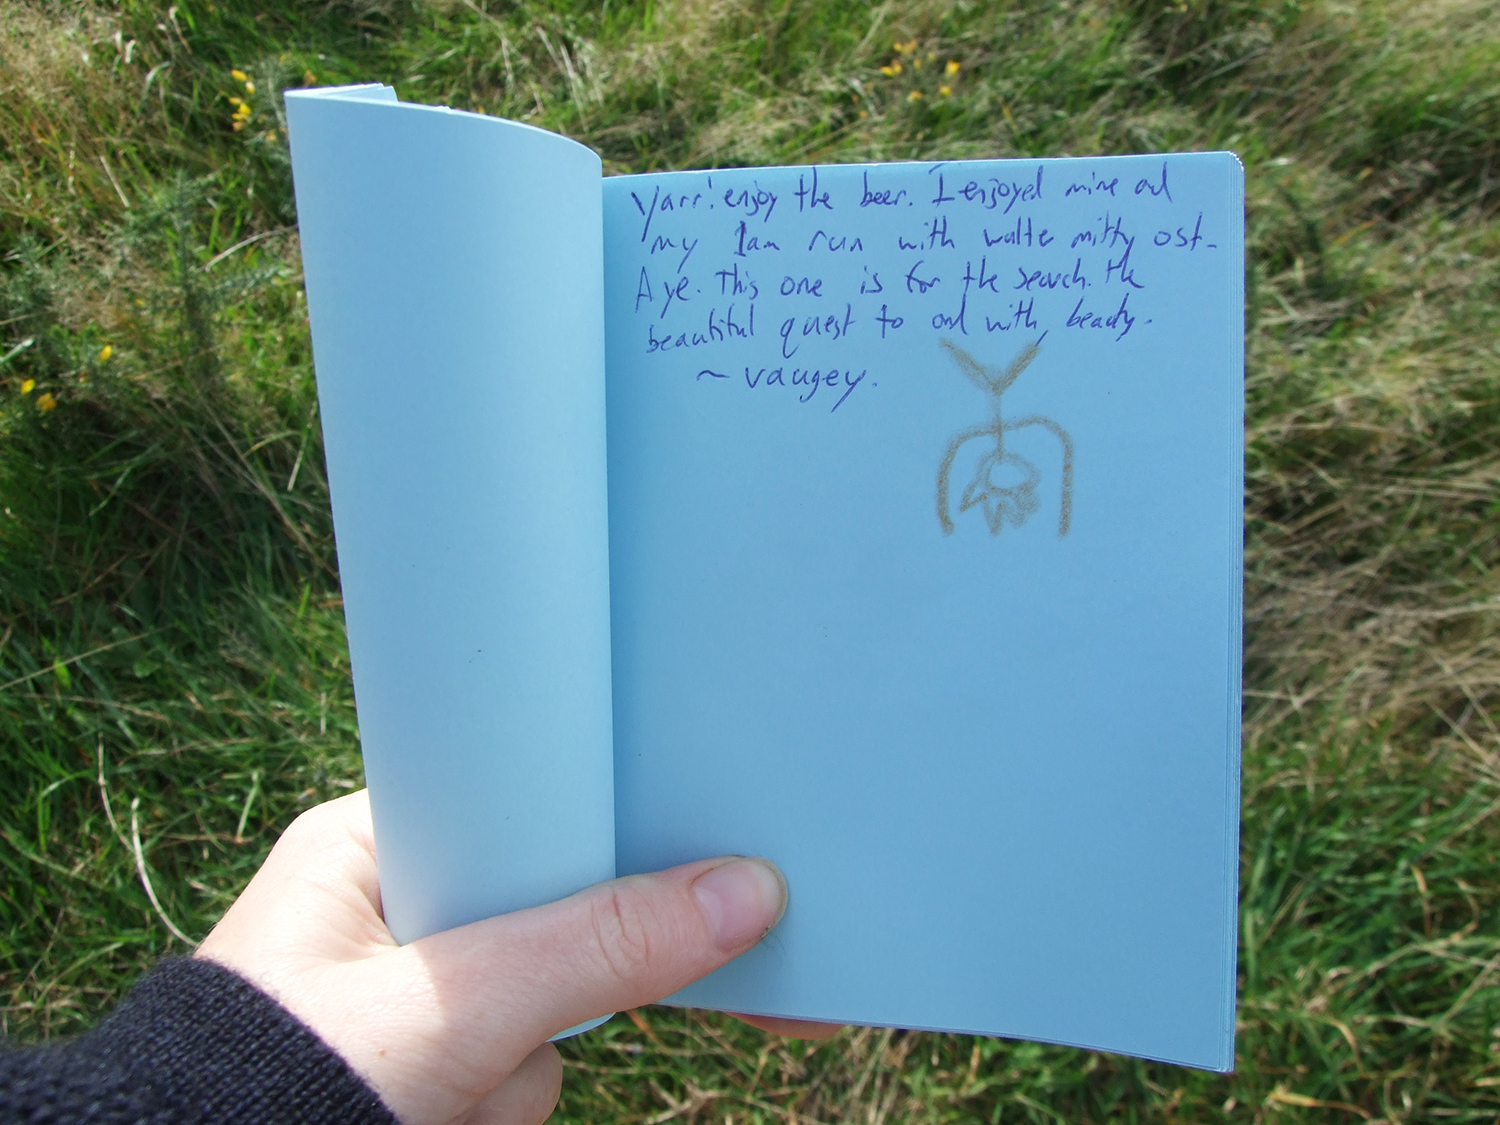 Yarr! enjoy the beer. I enjoyed mine and
my 1am run with walter mitty ost.
Aye. This one is for the search. the
beautiful quest to and with beauty.
~ vaugey.